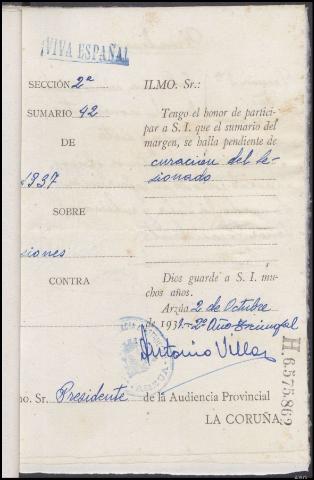 ¡VIVA ESPAÑA!
SECCIÓN 2ª
SUMARIO 42
DE
1937
SOBRE
siones
CONTRA
ILMO. Sr.:
Tengo el honor de partici-
par a S. I. que el sumario del
margen, se halla pendiente de
curación del le-
sionado
Dios guarde a S. I. mu-
chos años.
Arzúa 2 de Octubre
de 1937-2º Año Triunfal
Antonio Villa
H.6.575.869
no. Sr. Presidente de la Audiencia Provincial
LA CORUÑA